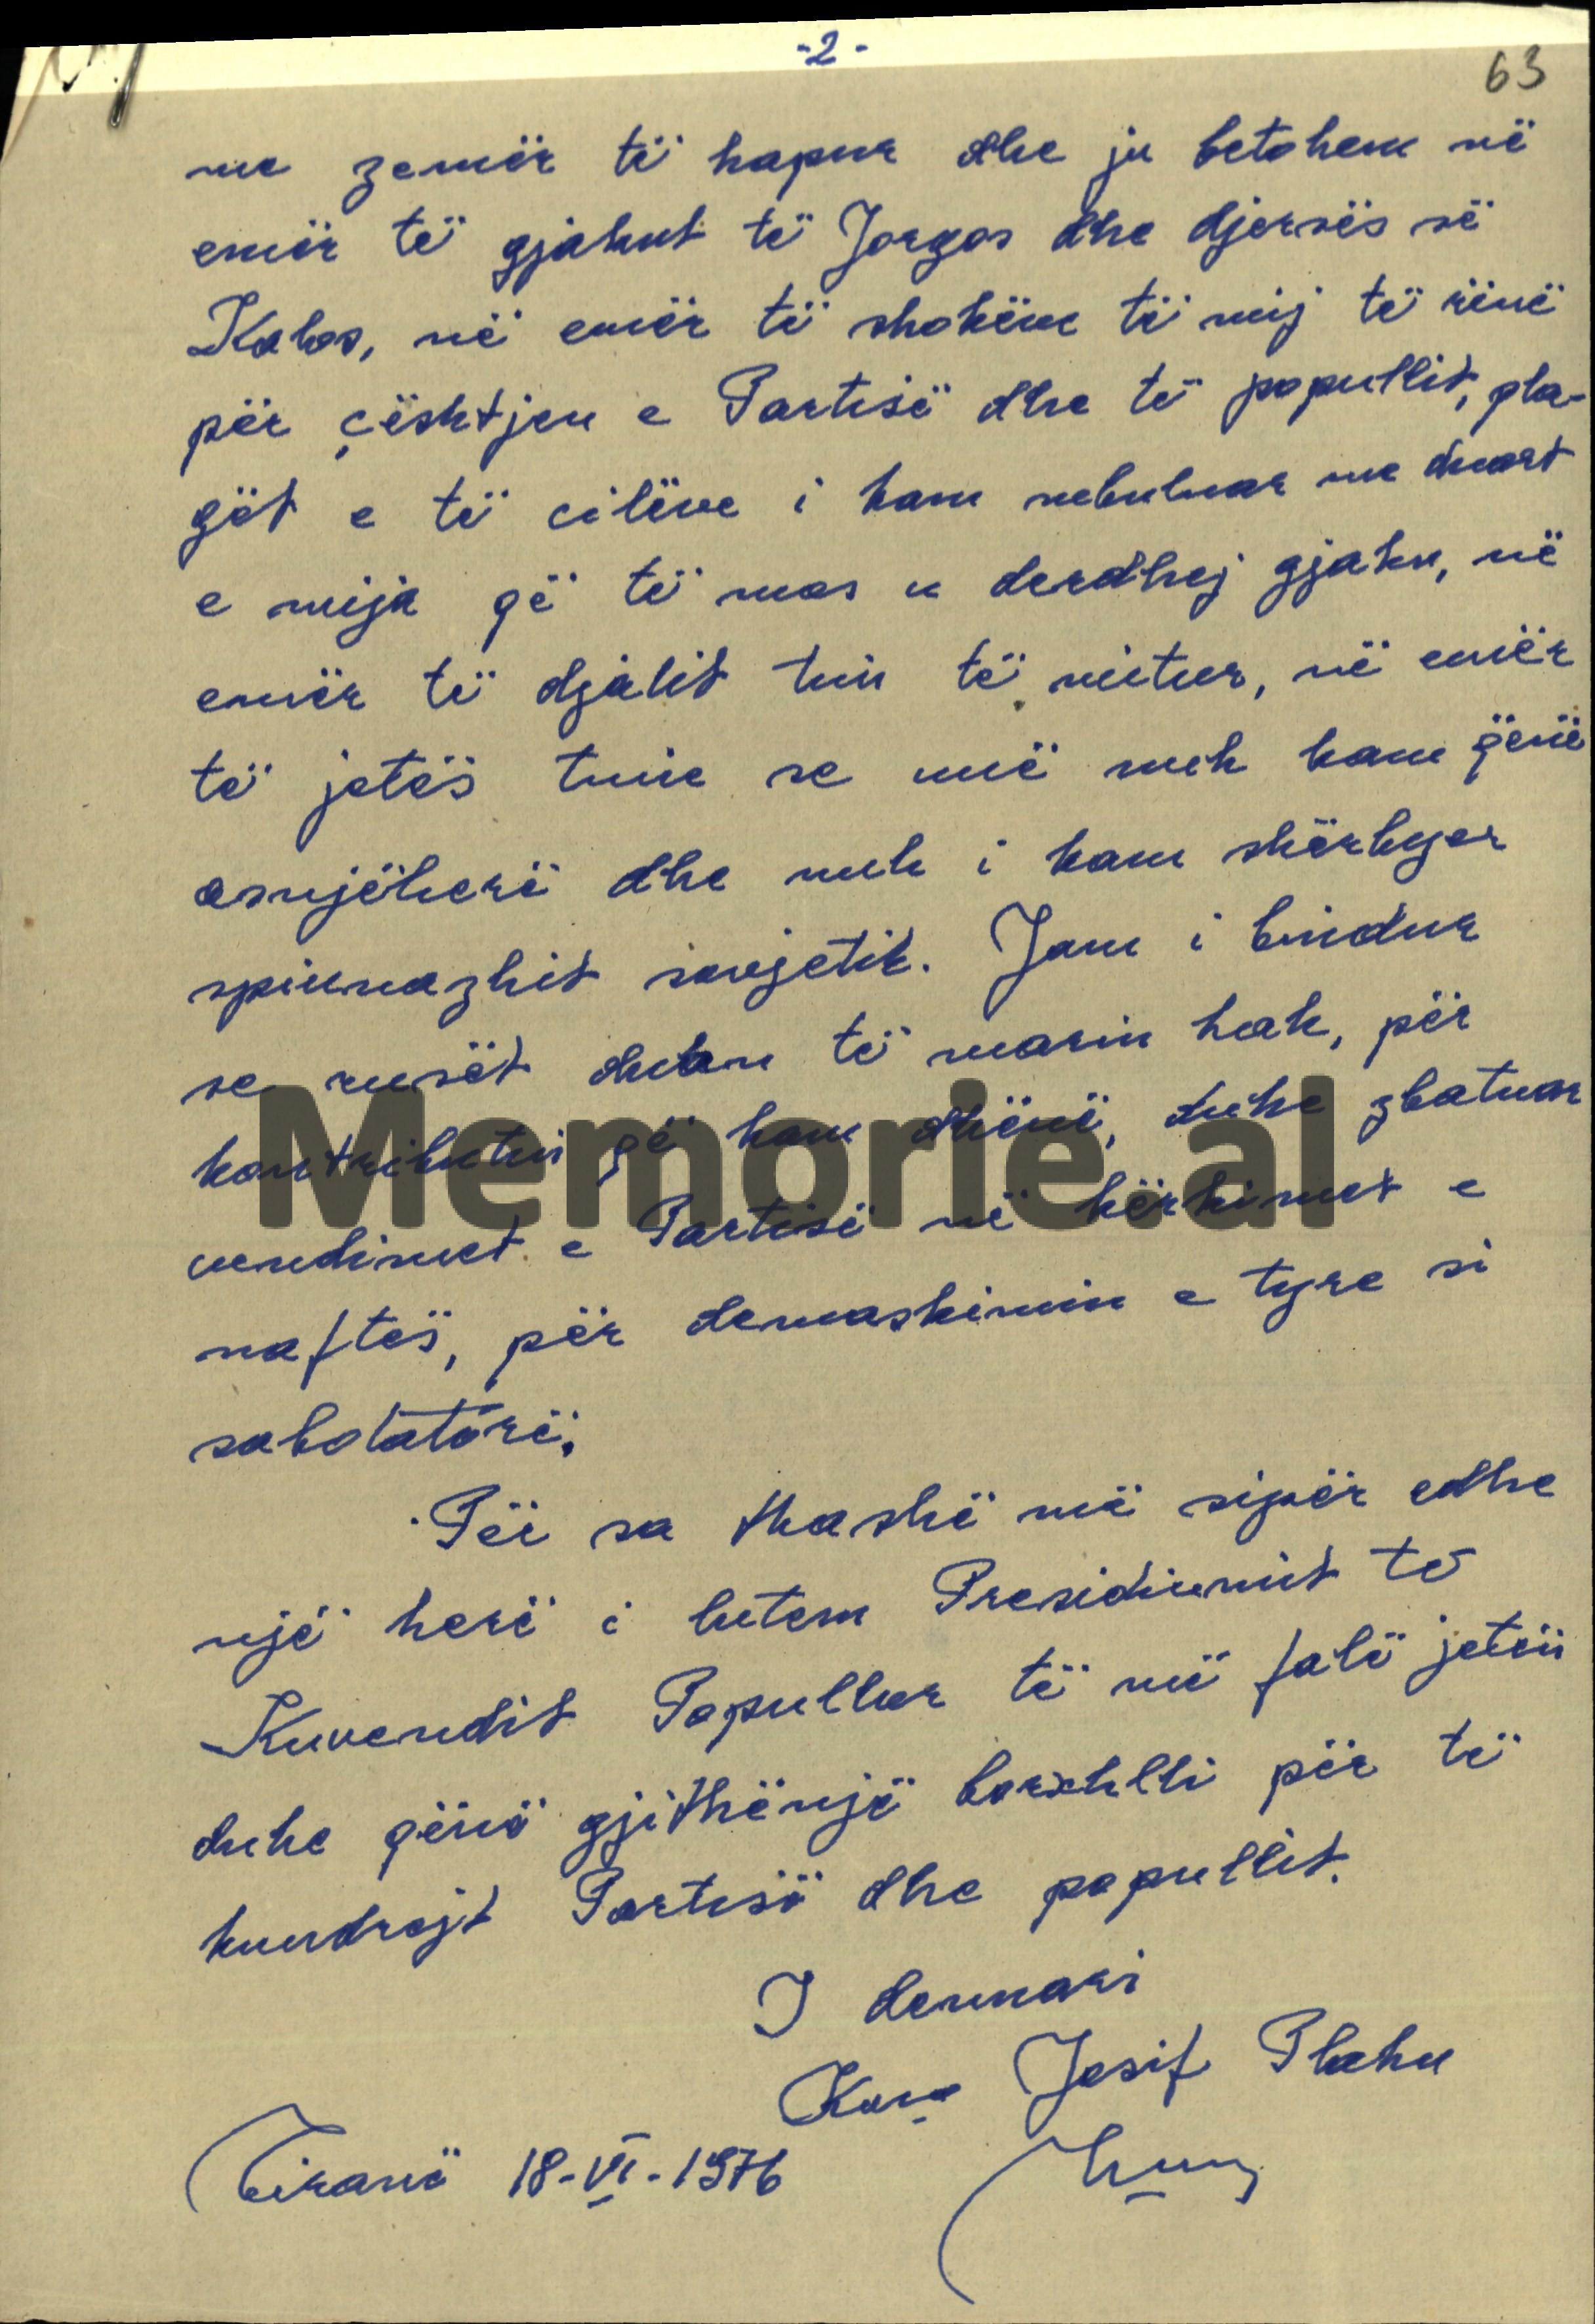 -2-
63
me zemër të hapur dhe ju betohem në
emër të gjakut të Jorgos dhe djersës së
Kolos, në emër të shokëve të mij të rënë
për çështjen e Partisë dhe të popullit, pla-
gët e të cilëve i kam mbuluar me duart
e mija që të mos u derdhej gjaku, në
emër të djalit tim të mitur, në emër
të jetës time se unë nuk kam qenë
asnjëherë dhe nuk i kam shërbyer
spiunazhit sovjetik. Jam i bindur
se rusët duan të marin hak, për
kontributin që kam dhënë, duke zbatuar
vendimet e Partisë në kërkimet e
naftës, për demaskimin e tyre si
sabotatorë.
Për sa thashë më sipër edhe
një herë i lutem Presidiumit të
Kuvendit Popullor të më falë jetën
duke qënë gjithënjë borxhlli për të
kundrejt Partisë dhe popullit.
I denuari
Koço Josif Plaku
Tiranë 18-VI-1976
Memorie.al